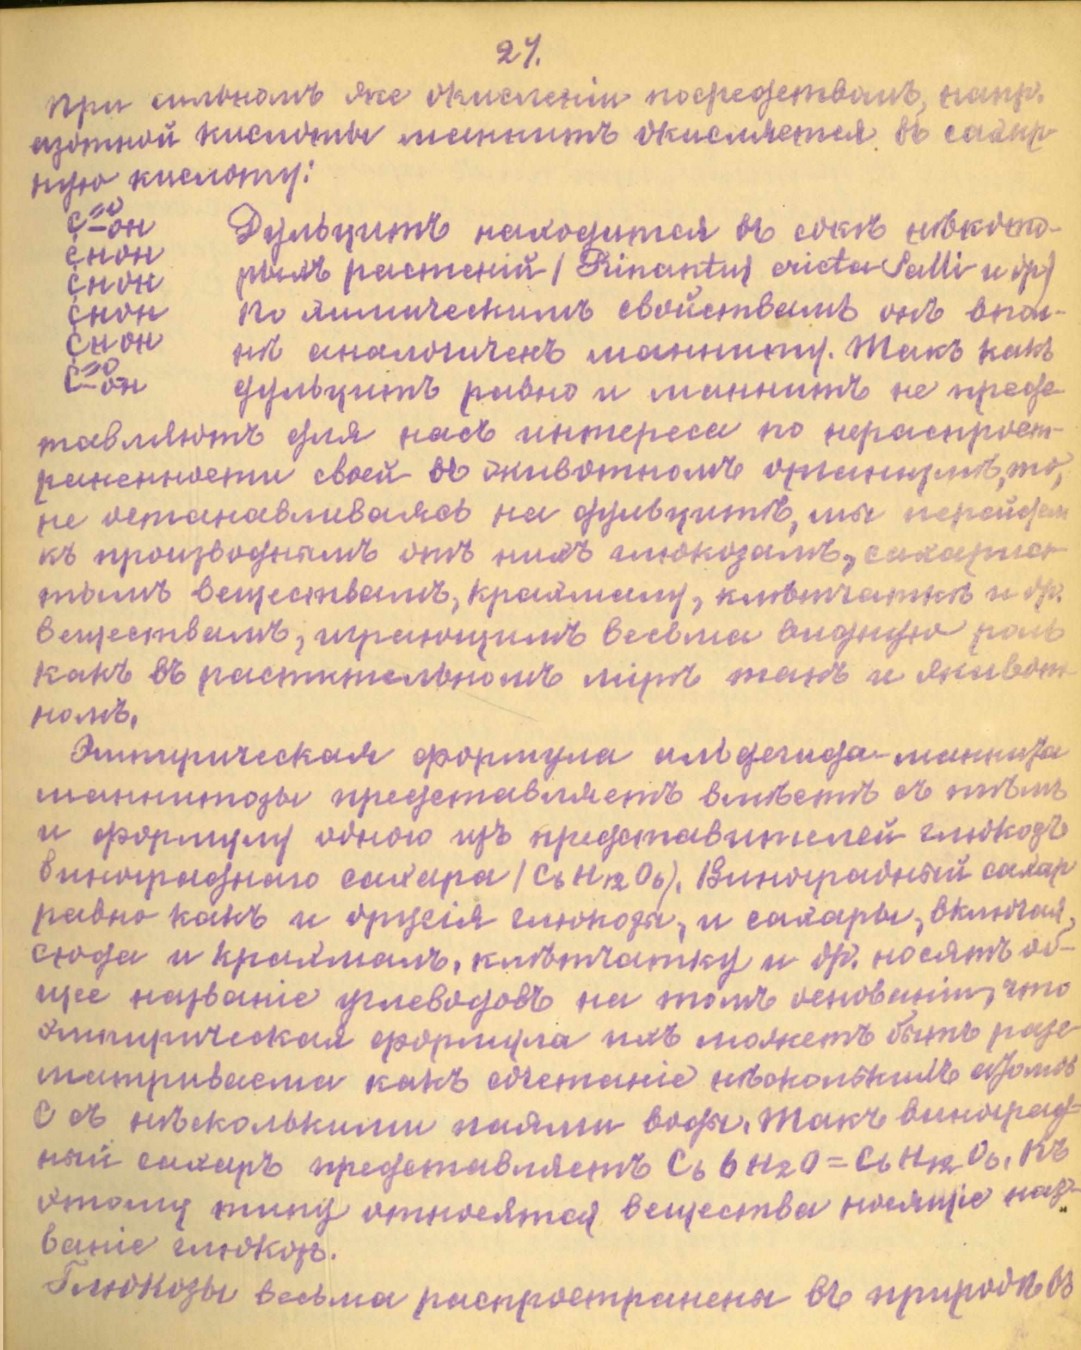 27.
При сильномъ же окисленіи посредствомъ, напр.
азотной кислоты маннитъ окисляется въ сахар
ную кислоту:
C=O–OH Дульцитъ находится въ сокѣ нѣкото-
CHOH рыхъ растеній (Rinantus cricta Salli и др)
CHOH По химическимъ свойствамъ онъ впол-
CHOH нѣ аналогиченъ манниту. Такъ какъ
CHOH дульцитъ равно и маннитъ не предс-
C=O–OH
тавляютъ для насъ интереса по нераспрост-
раненности своей въ животномъ организмѣ, то,
не останавливаясь на дульцитѣ, мы перейдем
къ производнымъ отъ нихъ глюкозамъ, сахарис-
тымъ веществамъ, крахмалу, клѣтчаткѣ и др.
веществамъ, играющимъ весьма видную роль
какъ въ растительномъ мірѣ такъ и живот
номъ.
Эмпирическая формула альдегида-маннита
маннитозы представляетъ вмѣстѣ съ тѣмъ
и формулу одного изъ представителей глюкозъ
винограднаго сахара (C6H12O6). Виноградный сахар
равно какъ и другія глюкозы, и сахары, включая,
сюда и крахмалъ, клѣтчатку и др. носятъ об-
щее названіе углеводовъ на томъ основаніи, что
эмпирическая формула ихъ можетъ быть разс
матриваема какъ сочетаніе нѣсколькихъ атомов
С съ нѣсколькими паями воды. Такъ виноград-
ный сахаръ представляетъ C6 6H2O = C6H12O6. Къ
этому типу относятся вещества носящіе наз-
ваніе глюкозъ.
Глюкозы весьма распространены въ природѣ въ